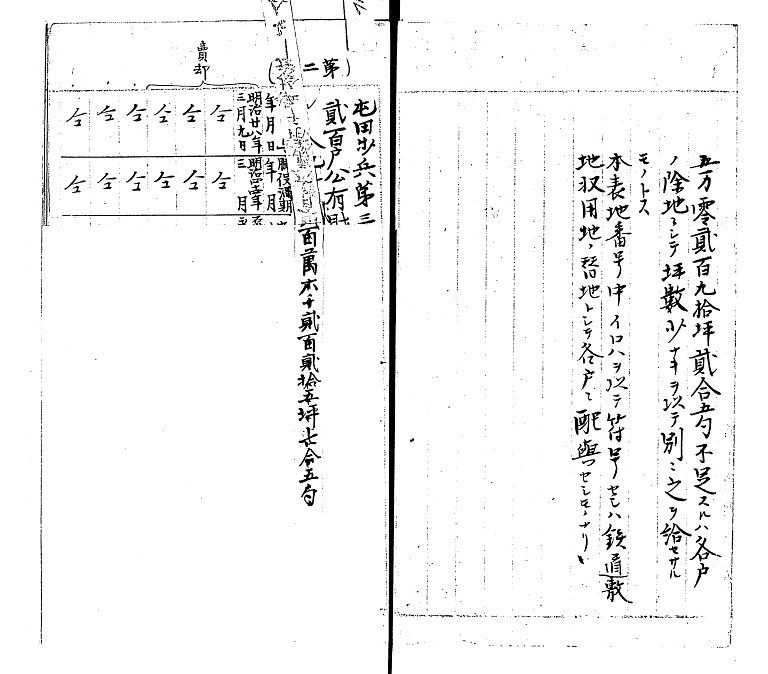 五万零貳百九拾坪貳合五勺不足スルハ各戸
ノ除地ニシテ坪數少ナキヲ以テ別ニ之ヲ給セサル
モノトス
本表地番号中イロハヲ以テ符号セシハ鉄道敷
地収用地ノ替地トシテ各戸ニ配與セシモノナリ
屯田歩兵第三
貳百戸公有財
(第二
百萬六千貳百貳拾五坪七合五勺
年月日
明治廿八年
三月九日
服役満期
年月
明治四
三月
賣却
仝
仝
仝
仝
仝
仝
仝
仝
仝
仝
仝
仝